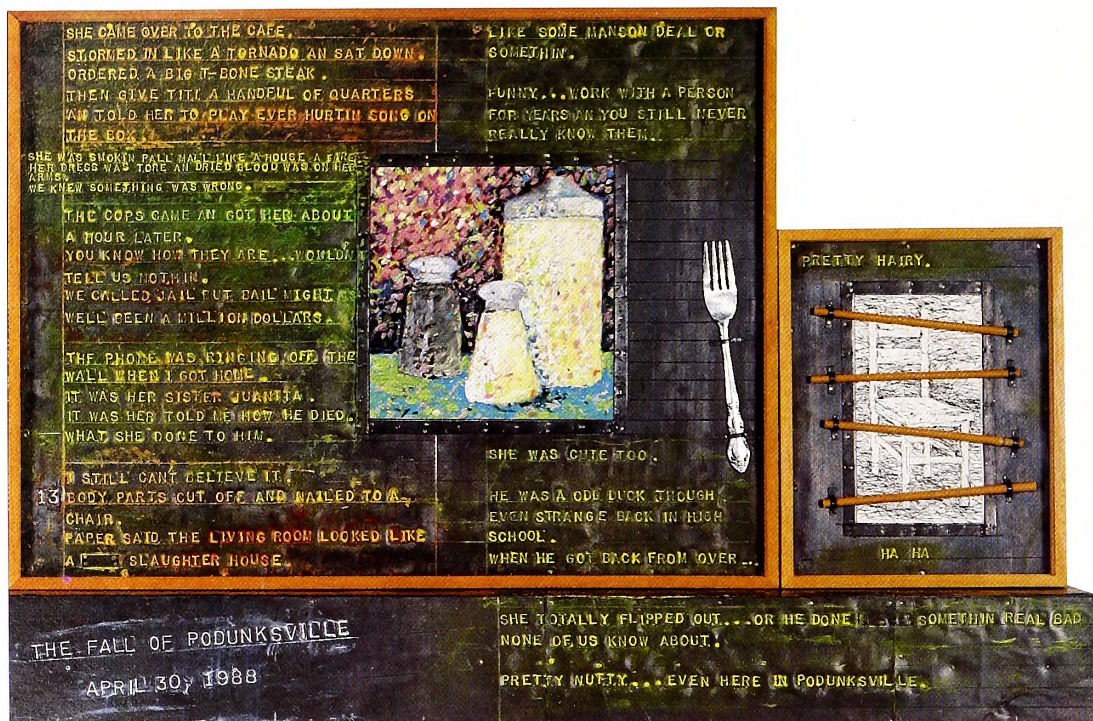 SHE CAME OVER TO THE CAFE.
STORMED IN LIKE A TORNADO AN SAT DOWN.
ORDERED A BIG T-BONE STEAK.
THEN GIVE TITI A HANDFUL OF QUARTERS
AN TOLD HER TO PLAY EVER HURTIN SONG ON
THE BOX.
SHE WAS SMOKIN PALL MALL LIKE A HOUSE A FIRE
HER DRESS WAS TORE AN DRIED BLOOD WAS ON HER
ARMS.
WE KNEW SOMETHING WAS WRONG.
THE COPS CAME AN GOT HER ABOUT
A HOUR LATER.
YOU KNOW HOW THEY ARE...WOULDN
TELL US NOTHIN.
WE CALLED JAIL BUT BAIL MIGHT
WELL BEEN A MILLION DOLLARS.
THE PHONE WAS RINGING OFF THE
WALL WHEN I GOT HOME.
IT WAS HER SISTER JUANITA.
IT WAS HER TOLD ME HOW HE DIED.
WHAT SHE DONE TO HIM.
I STILL CANT BELIEVE IT.
13 BODY PARTS CUT OFF AND NAILED TO A
CHAIR.
PAPER SAID THE LIVING ROOM LOOKED LIKE
A SLAUGHTER HOUSE.
LIKE SOME MANSON DEAL OR
SOMETHIN.
FUNNY...WORK WITH A PERSON
FOR YEARS AN YOU STILL NEVER
REALLY KNOW THEM.
SHE WAS CUTE TOO.
HE WAS A ODD DUCK THOUGH
EVEN STRANGE BACK IN HIGH
SCHOOL.
WHEN HE GOT BACK FROM OVER...
PRETTY HAIRY.
HA HA
THE FALL OF PODUNKSVILLE
APRIL 30, 1988
SHE TOTALLY FLIPPED OUT...OR HE DONE SOMETHIN REAL BAD
NONE OF US KNOW ABOUT.
PRETTY NUTTY...EVEN HERE IN PODUNKSVILLE.